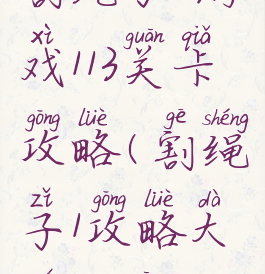 xì guān qiǎ
戏113关卡
gōng lüè gē shéng
攻略(割绳
zǐ gōng lüè dà
子1攻略大